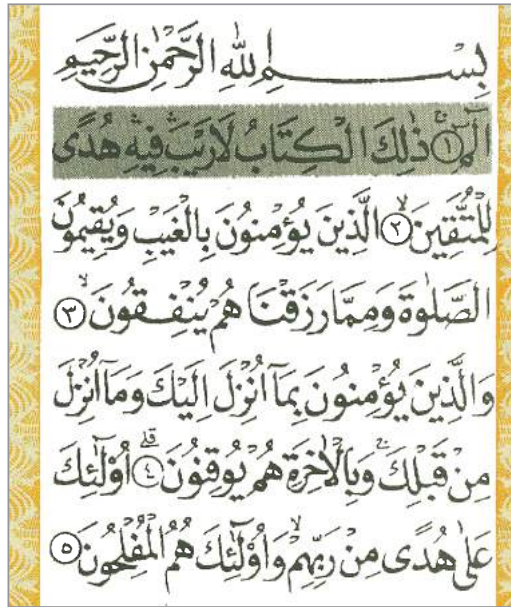 بِسْــــــمِ اللهِ الرَّحْمٰنِ الرَّحِيمِ
الٓمٓ ۚ ﴿١﴾ ذٰلِكَ الْكِتَابُ لَا رَيْبَ ۛ فِيهِ ۛ هُدًى
لِلْمُتَّقِينَ ۙ ﴿٢﴾ الَّذِينَ يُؤْمِنُونَ بِالْغَيْبِ وَيُقِيمُونَ
الصَّلٰوةَ وَمِمَّا رَزَقْنَا هُمْ يُنْفِقُونَ ۙ ﴿٣﴾
وَالَّذِينَ يُؤْمِنُونَ بِمَٓا اُنْزِلَ اِلَيْكَ وَمَٓا اُنْزِلَ
مِنْ قَبْلِكَ ۚ وَبِالْاٰخِرَةِ هُمْ يُوقِنُونَ ۗ ﴿٤﴾ اُولٰٓئِكَ
عَلٰى هُدًى مِنْ رَبِّهِمْ ۙ وَاُولٰٓئِكَ هُمُ الْمُفْلِحُونَ ﴿٥﴾